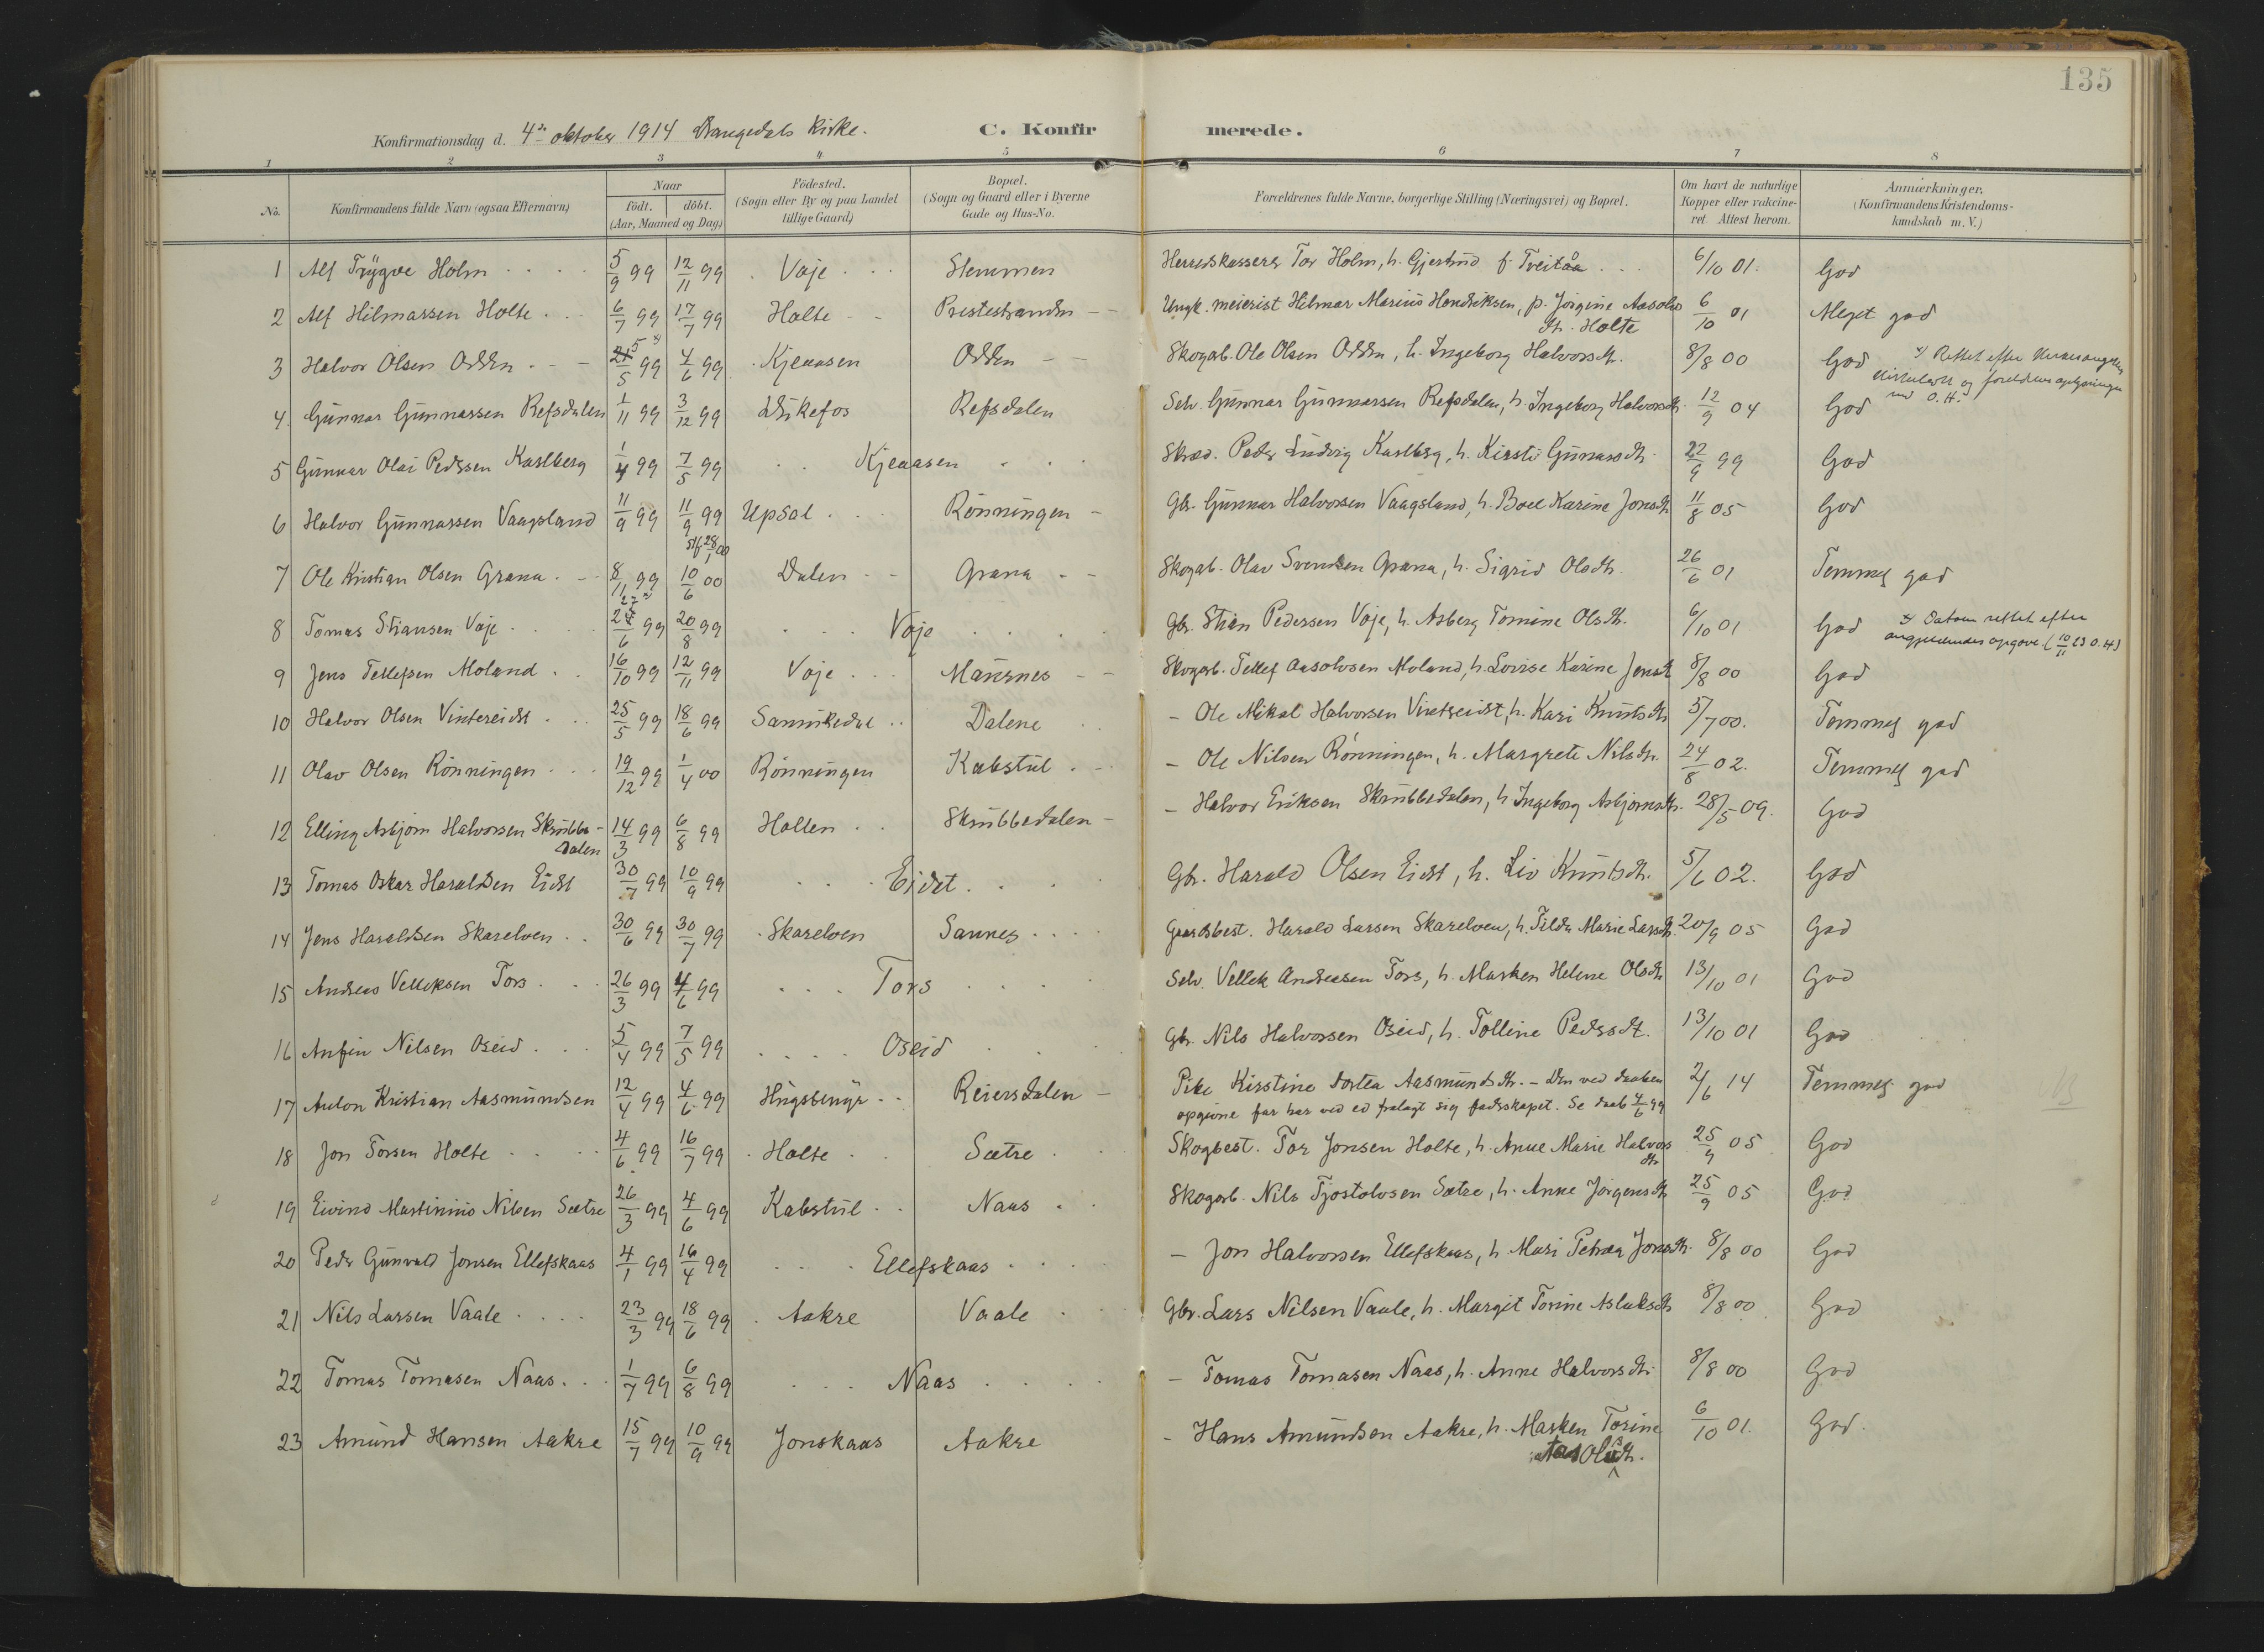 135
Konfirmationsdag d. 4de oktober 1914 Drangedals kirke. C. Konfirmerede.
1 2 3 4 5 6 7 8
No. Konfirmandens fulde Navn (ogsaa Efternavn) Naar födt. döbt. (Aar, Maaned og Dag) Födested. (Sogn eller By og paa Landet tillige Gaard) Bopæl. (Sogn og Gaard eller i Byerne Gade og Hus-No. Forældrenes fulde Navne, borgerlige Stilling (Næringsvei) og Bopæl. Om havt de naturlige Kopper eller vakcineret Attest herom. Anmærkninger. (Konfirmandens Kristendomskundskab m. V.)
1 Alf Trygve Holm 5/9 99 12/11 99 Voje Stemmen Herredskasserer Tor Holm, h. Gjertrud f. Treitåa 6/10 01. God
2 Alf Hilmarsen Holte 6/7 99 17/7 99 Holte Prestestranden Ungk. meierist Hilmar Marius Hendriksen, p. Jörgine Aasolvs
dtr. Holte 6/10 01 Meget god
3 Halvor Olsen Odden 5/5 99 4/6 99 Kjeaasen Odden Skogarb. Ole Olsen Odden, h. Ingeborg Halvorsdtr. 8/8 00 God x) Rettet efter
og forældres oplysninger
O.H.
4 Gunnar Gunnarsen Refsdalen 1/11 99 3/12 99 Dukefos Refsdalen Selv. Gunnar Gunnarsen Refsdalen, h. Ingeborg Halvorsdtr. 12/9 04 God
5 Gunnar Olai Pedersen Kastberg 1/4 99 7/5 99 Kjeaasen Skræd. Peder Ludvig Kastberg, h. Kirsti Gunnarsdtr. 22/9 99 God
6 Halvor Gunnarsen Vaagsland 11/9 99 11/9 99 Upsal Rönningen Gbr. Gunnar Halvorsen Vaagsland, h. Boel Karine Jonsdtr 11/8 05 God
stf 28/1 00
7 Ole Kristian Olsen Grana 8/11 99 10/6 00 Dalen Grana Skogarb. Olav Svendsen Grana, h. Sigrid Olsdtr. 26/6 01 Temmel god
27 x)
8 Tomas Stiansen Voje 24/6 99 20/8 99 Voje Gbr. Stian Pedersen Voje, h. Asberg Tomine Olsdtr. 6/10 01 God x) Datoen rettet efter
angjeldendes opgave (10/11 63 O.H)
9 Jens Tellefsen Moland 16/10 99 12/11 99 Voje Mausnes Skogarb. Tellef Aasolvsen Moland, h. Lovise Karine Jensdt 8/8 00 God
10 Halvor Olsen Vintereidet 25/5 99 18/6 99 Sannikedal Dalene - Ole Mikal Halvorsen Vintereidet, h. Kari Knutsdtr 5/7 00. Temmel god
11 Olav Olsen Rönningen 19/12 99 1/4 00 Rönningen Kabstul - Ole Nilsen Rönningen, h. Margrete Nilsdtr. 24/8 02. Temmel god
12 Elling Asbjörn Halvorsen Skrubbe-
dalen 14/3 99 6/8 99 Holten Skrubbedalen - Halvor Eriksen Skrubbedalen, h. Ingeborg Asbjörnsdtr. 28/5 09. God
13 Tomas Oskar Haraldsen Eidet 30/7 99 10/9 99 Eidet Gbr. Harald Olsen Eidet, h. Liv Knutsdtr. 5/6 02. God
14 Jens Haraldsen Skarelven 30/6 99 30/7 99 Skarelven Sannes Gaardsbest. Harald Larsen Skarelven, h. Tilda Marie Larsdtr. 20/9 05 God
15 Andreas Velleksen Tors 26/3 99 4/6 99 Tors Selv. Vellek Andreasen Tors, h. Masken Helene Olsdtr 13/10 01 God
16 Anfin Nilsen Oseid 5/4 99 7/5 99 Oseid Gbr. Nils Halvorsen Oseid, h. Tolline Pedersdt. 13/10 01 God
17 Anton Kristian Aasmundsen 12/4 99 4/6 99 Hugstmyr Reiersdalen Pike Kirstine Dortea Aasmundsdtr. - Den ved daaben
opgivne far har ved ed fralagt sig farskapet. Se daab 4/6 99 2/6 14 Temmel god
18 Jon Torsen Holte 4/6 99 16/7 99 Holte Sætre Skogbest. Tor Jonsen Holte, h. Anne Marie Halvors
dtr 25/9 05 God
19 Eivind Martinius Nilsen Sætre 26/3 99 4/6 99 Kabstul Naas Skogarb. Nils Tjostolvsen Sætre, h. Anne Jörgensdtr 25/9 05 God
20 Peder Gunvald Jonsen Ellefskaas 4/1 99 16/4 99 Ellefskaas - Jon Halvorsen Ellefskaas, h. Mari Petrea Jonsdtr. 8/8 00 God
21 Nils Larsen Vaale 23/3 99 18/6 99 Aakre Vaale Gbr. Lars Nilsen Vaale, h. Margit Torine Aslaksdtr 8/8 00 God
22 Tomas Tomasen Naas 1/7 99 6/8 99 Naas - Tomas Tomasen Naas, h. Anne Halvorsdtr. 8/8 00 God
23 Amund Hansen Aakre 15/7 99 10/9 99 Jonskaas Aakre - Hans Amundsen Aakre, h. Masken Torine 6/10 01. God.